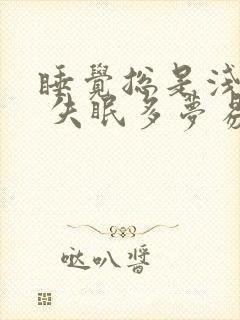 睡覺總是淺
失眠多夢易
哒叭醬